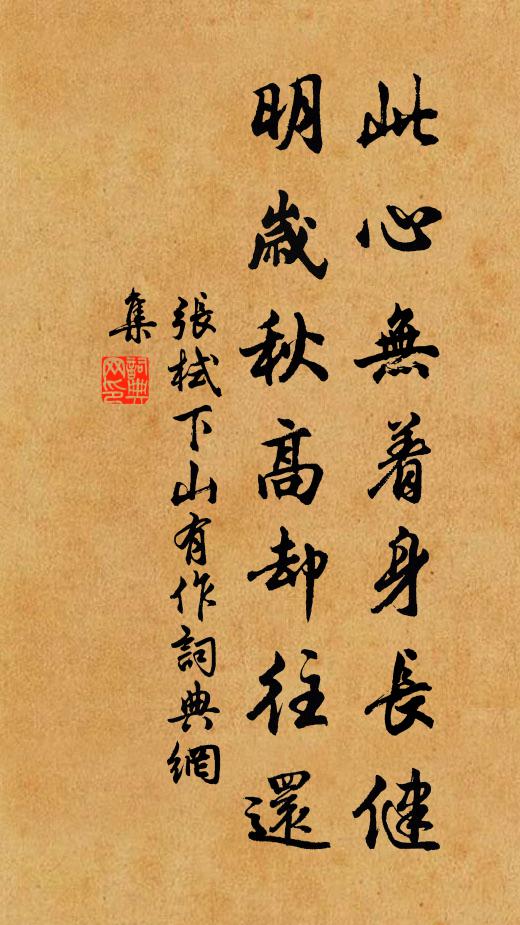 此心無着身長健
明歲秋高却往還
張栻下山有作詞典網
集
詞典
网印